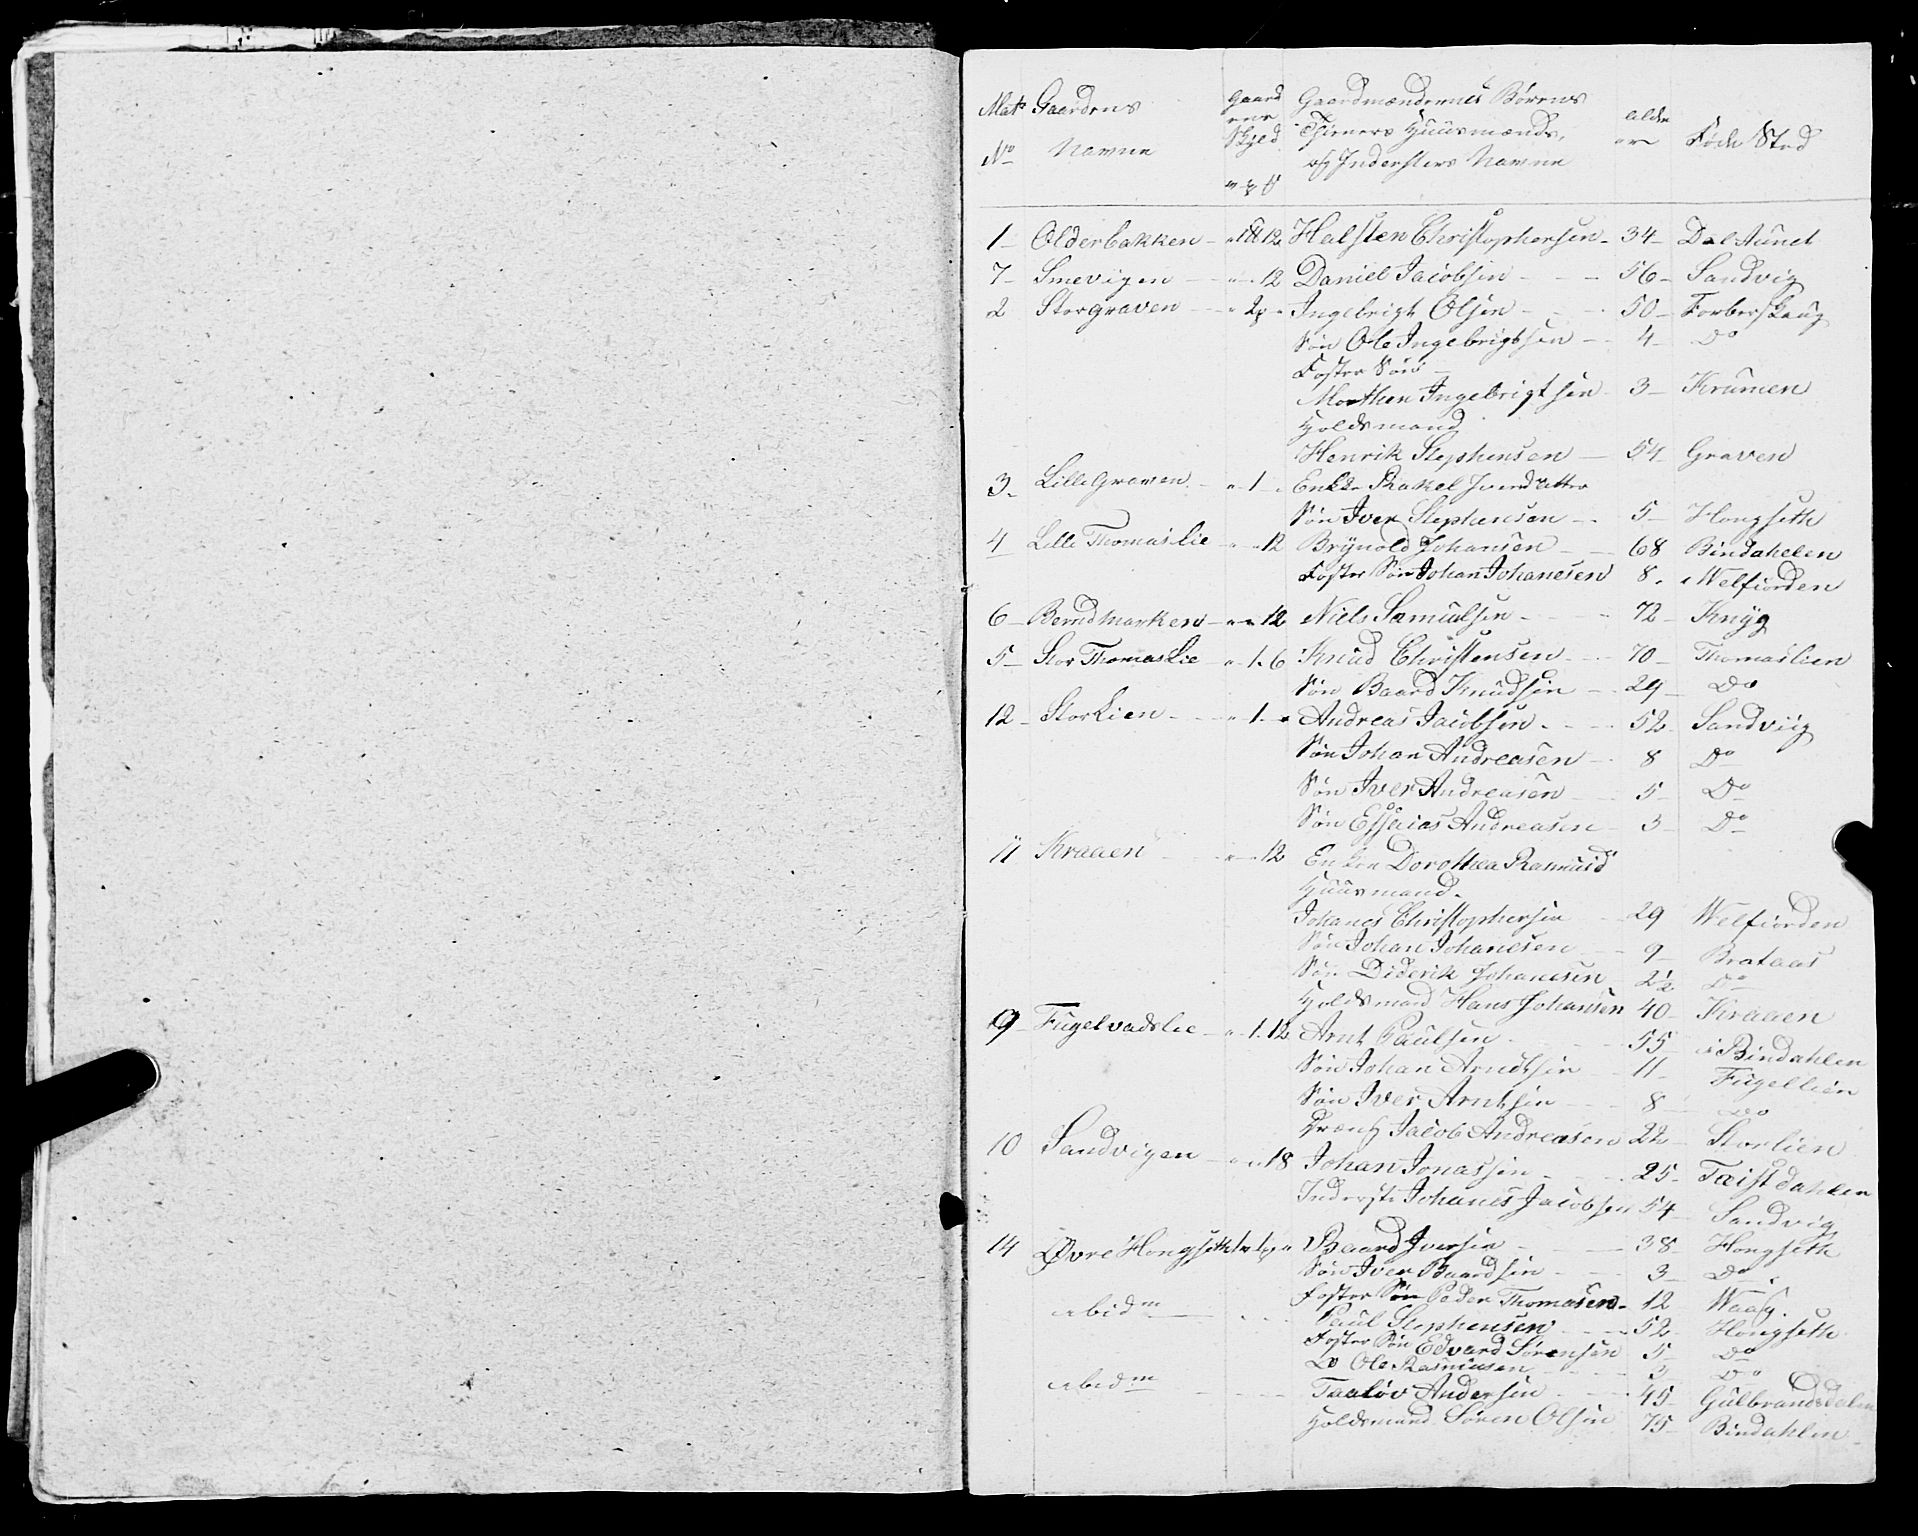 Mat: Gaardens Gaard Gaardmændernes Børens alde
No Navne ens Skyld Tieners Huusmænds, ere Føde Stæd
og Inderster Navne
1 Olderbakken 12 Halsten Christophersen 34 Dal Aunet
7 Smevigen 12 Daniel Jacobsen 56 Sandvig
2 Storgraven Ingebrigt Olsen 50 Forberskaug
Søn Ole Ingebrigtsen 4 Do
Foster Søn
Morthen Ingebrigtsen 3 Krumen
Holdsmand
Henrik Stephensen 54 Graven
3 Lille Graven 1 Enke Rakel Iversdatter
Søn Iver Stephensen 5 Hongseth
4 Lille Thomaslie 12 Brÿnold Johansen 68 Bindahelen
Foster Søn Johan Johanesen 8 Welfiorden
6 Berndmarken 12 Niels Samuelsen 72 Knÿg
5 Stor Thomaslie 1. 6 Knud Christensen 70 Thomaslien
Søn Baard Knudsen 29 Do
12 Storlien 1 Andreas Jacobsen 52 Sandviig
Søn Johan Andreasen 8 Do
Søn Iver Andreasen 5 Do
Søn Essaias Andreasen 3 Do
11 Kraaen 12 Enken Dorothea Rasmusd
Huusmand
Johanes Christophersen 29 Welfiorden
Søn Johan Johanesen 9 Brataas
Søn Diderik Johanesen 2½ Do
Holdsmand Hans Johansen 40 Kraaen
9 Fugelvadslie 1. 12 Arnt Paulsen 55 i Bindahlen
Søn Johan Arndtsen 11 Fugellien
Søn Iver Arntsen 8 Do
Dræng Jacob Andreasen 22 Storlien
10 Sandvigen 18 Johan Jonassen 25 Tæistdahlen
Inderste Johanes Jacobsen 54 Sandvig
14 Øvre Hongseth Baard Iversen 38 Hongseth
Søn Iver Baardsen 3 Do
Foster Søn Peder Thomasen 12 Waag
ibidm Paul Stephensen 52 Hongseth
Foster Søn Edvard Sørensen 5 Do
Do Ole Rasmusen 3 Do
ibidm Taaløv Andersen 45 Gulbrandsdalen
Holdsmand Søren Olsen 75 Bindahlen